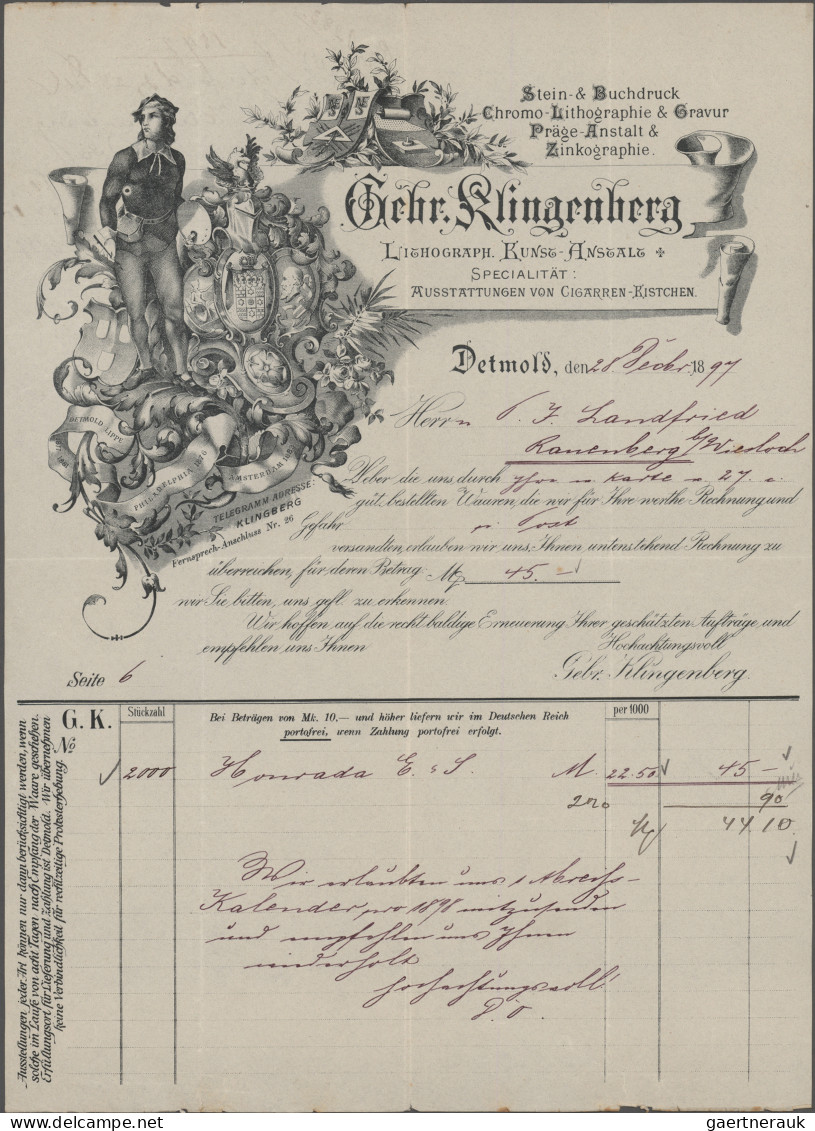 Stein- & Buchdruck
Chromo-Lithographie & Gravur
Präge-Anstalt &
Zinkographie.
Gebr. Klingenberg
Lithograph. Kunst-Anstalt
Specialität:
Ausstattungen von Cigarren-Kistchen.
DETMOLD LIPPE
PHILADELPHIA 1876
AMSTERDAM 1883
TELEGRAMM ADRESSE:
KLINGBERG
Fernsprech-Anschluss Nr. 26
Detmold, den 28 Decbr. 1897
Herrn P. J. Landfried
Rauenberg b/Wiesloch
Ueber die uns durch Karte v. 27. c.
güt. bestellten Waaren, die wir für Ihre werthe Rechnung und
Gefahr pr Post
versandten, erlauben wir uns, Ihnen untenstehend Rechnung zu
überreichen, für deren Betrag: M 45.—
wir Sie bitten, uns gefl. zu erkennen.
Wir hoffen auf die recht baldige Erneuerung Ihrer geschätzten Aufträge und
empfehlen uns Ihnen Hochachtungsvoll
Gebr. Klingenberg.
Seite 6
Ausstellungen jeder Art können nur dann berücksichtigt werden, wenn
solche im Laufe von acht Tagen nach Empfang der Waare geschehen.
Erfüllungsort für Lieferung und Zahlung ist Detmold. Wir übernehmen
keine Verbindlichkeit für rechtzeitige Protesterhebung.
G. K. Stückzahl Bei Beträgen von Mk. 10.— und höher liefern wir im Deutschen Reich per 1000
No portofrei, wenn Zahlung portofrei erfolgt.
2000 Honrada E. & S. M. 22.50 45 —
2% 90
M 44.10
Wir erlaubten uns 1 Abreiß-
Kalender pro 1898 mitzusenden
und empfehlen uns Ihnen
wiederholt
hochachtungsvoll!
D. O.
gaertnerauk